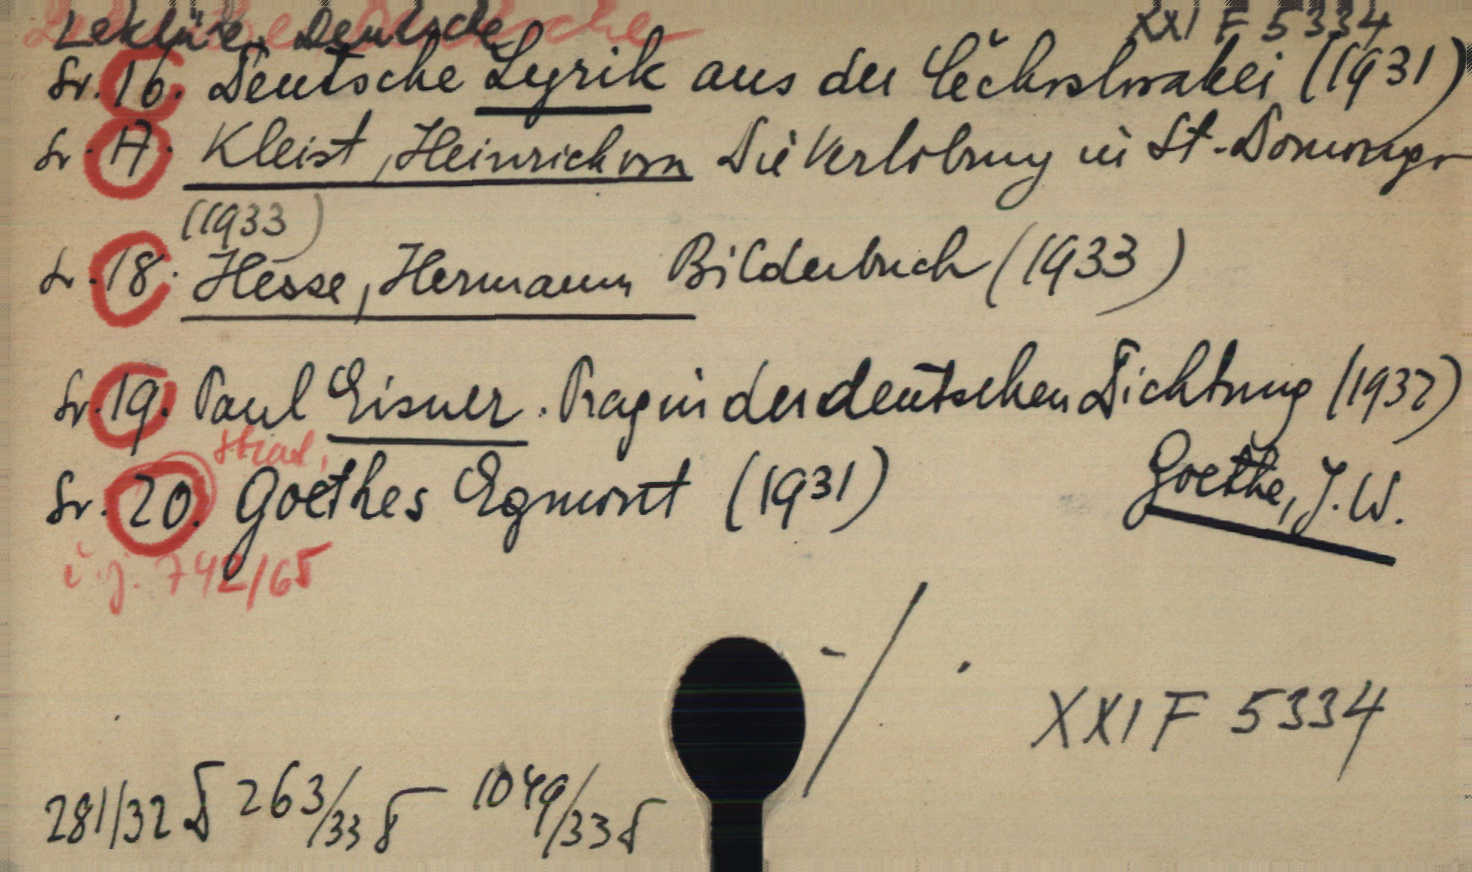 Lektüre. Deutsche XXI F 5334
Sv. 16. Deutsche Lyrik aus der Čechoslovakei (1931)
Sv. 17. Kleist, Heinrich von Die Verlobung in St. Domingo
(1933)
Sv. 18. Hesse, Hermann Bilderbuch (1933)
Sv. 19. Paul Eisner. Prag in der deutschen Dichtung (1932)
Sv. 20. Goethes Egmont (1931) Goethe, J. W.
i. j. 742/65
XXI F 5334
281/32 263/33 1049/33